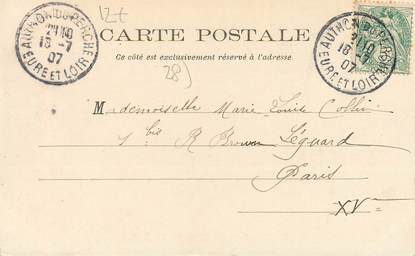 12t
CARTE POSTALE
Ce côté est exclusivement réservé à l'adresse.
28)
AUTHON-DU-PERCHE
21 10
16 -7
07
EURE ET LOIR
AUTHON-DU-PERCHE
21 10
16 -7
07
EURE ET LOIR
Mademoiselle Marie Louise Collin
1 bis R
Paris
XVe